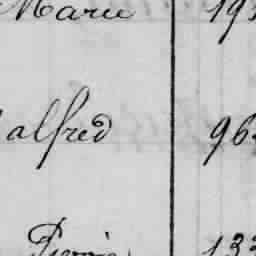 Marie 193
alfred 96
Pierre 133